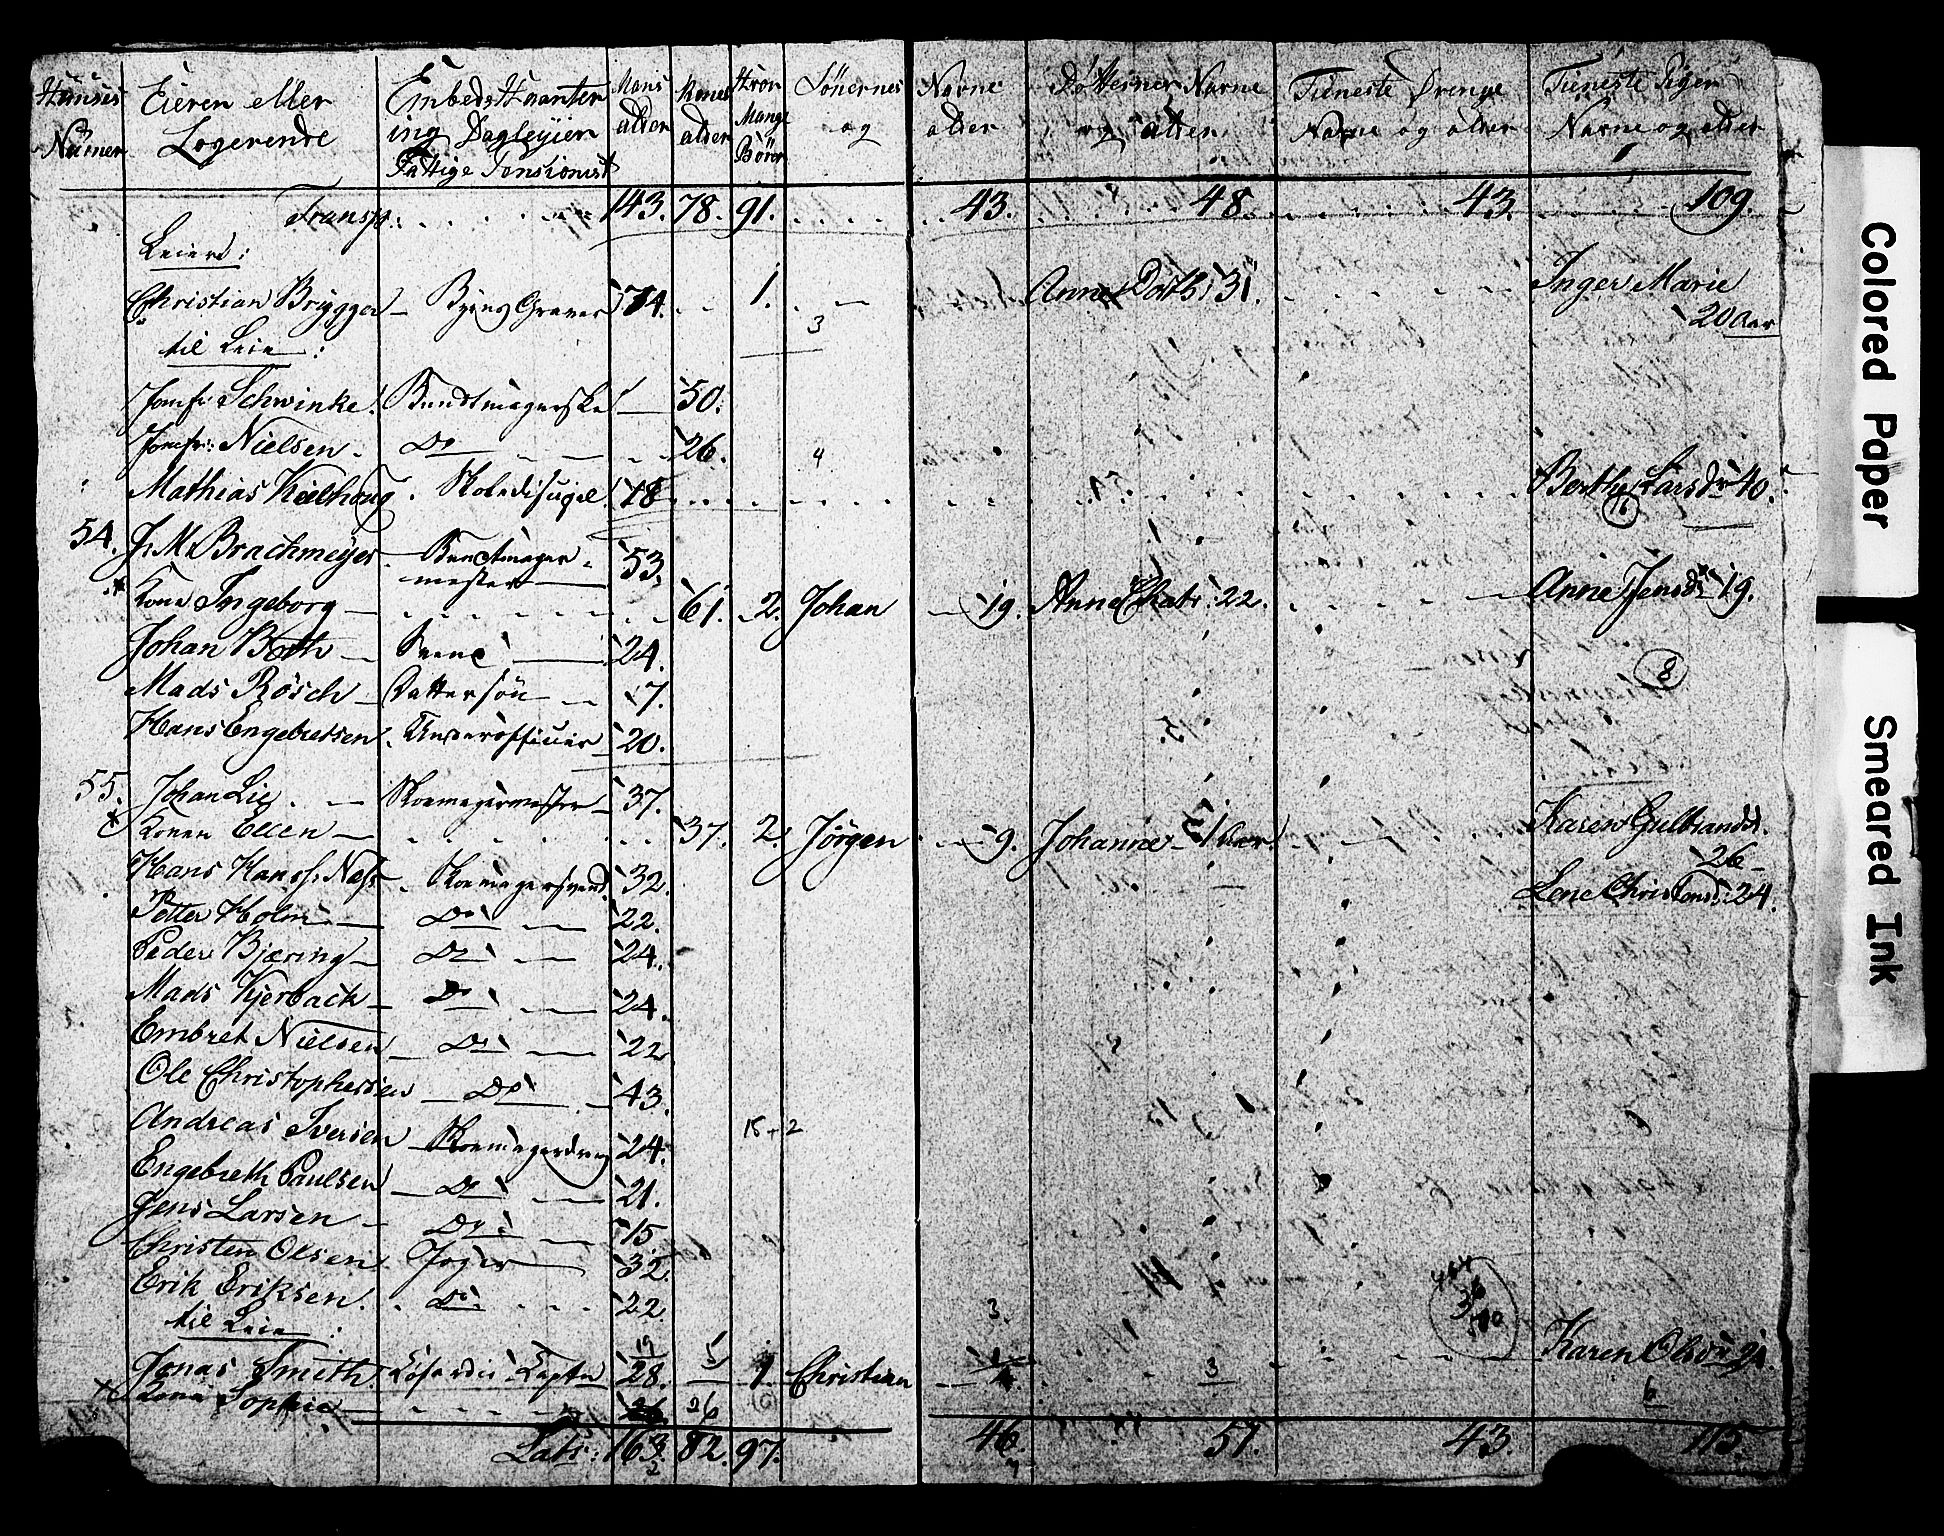 Huuses Numer | Eieren eller Logerende | Embeds Haanter ing Dagleyier Fattige Pensionist | Mans alder | Kones alder | Hvor Mange Börn | Sönernes og | Navne alder | Dötternes Navne og alder | Tieneste Drenge Navne og alder | Tieneste Piger Navne og alder
Transp: 143. 78. 91. 43. 48. 43. 109.
Leierd:
Christian Brygger Byens Graver 74. 1. Anne Doth: 31. Inger Marie
3 20 Aar
til Leie:
Jomfr Schwinke. Bundtmagerske 50.
Jomfr: Nielsen Do 26. 4
Mathias Kielhoug 18 Berthe Larsdr 40.
16
54. J: M: Brachmeyer Buntmager mester 53.
Kone Ingeborg 61. 2. Johan 19. Anne Chatr: 22. Anne Jensdr 19.
Johan Both Svend 24. 8
Mads Rösch Dattersön 7.
Hans Engebretsen Underofficeer 20.
55. Johan Lie Skomagermester 37.
Konen Ellen 37. 2. Jörgen 9. Johanne 1 Aar Karen Gulbrandsd.
26
Hans Hanss: Næss Skomagersvend 32. Lene Christensd: 24.
Petter Holm Do 22.
Peder Bjæring Do 24.
Mads Kjerback Do 24.
Embret Nielsen Do 22
Ole Christophersen Do 43.
Andreas Iversen Skomagerdreng 24. 15 + 2
Engebreth Paulsen Do 21.
Jens Larsen Do 15
Christen Olsen Jæger 32.
Erik Eriksen. Do 22. 3
til Leie:
19 5
Jonas Smith 28. 1. Christian 3 Karen Olsdr 21.
Kone Sophie 26 6
Lats: 163. 82. 97. 46. 51. 43. 115